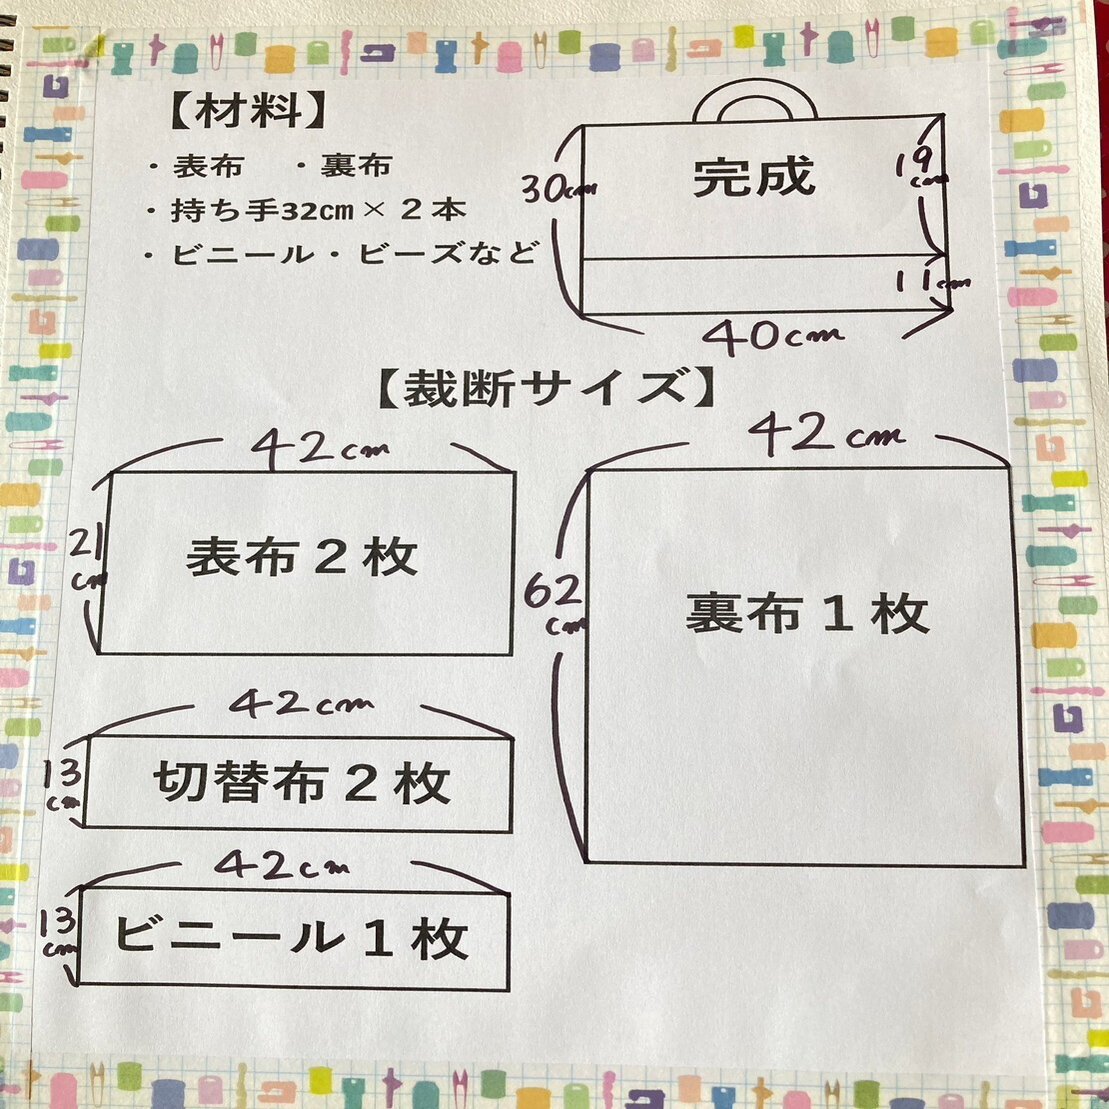 【材料】
・表布　・裏布
・持ち手32cm×２本
・ビニール・ビーズなど
完成
30cm
19cm
11cm
40cm
【裁断サイズ】
42cm
21cm
表布２枚
42cm
62cm
裏布１枚
42cm
13cm
切替布２枚
42cm
13cm
ビニール１枚